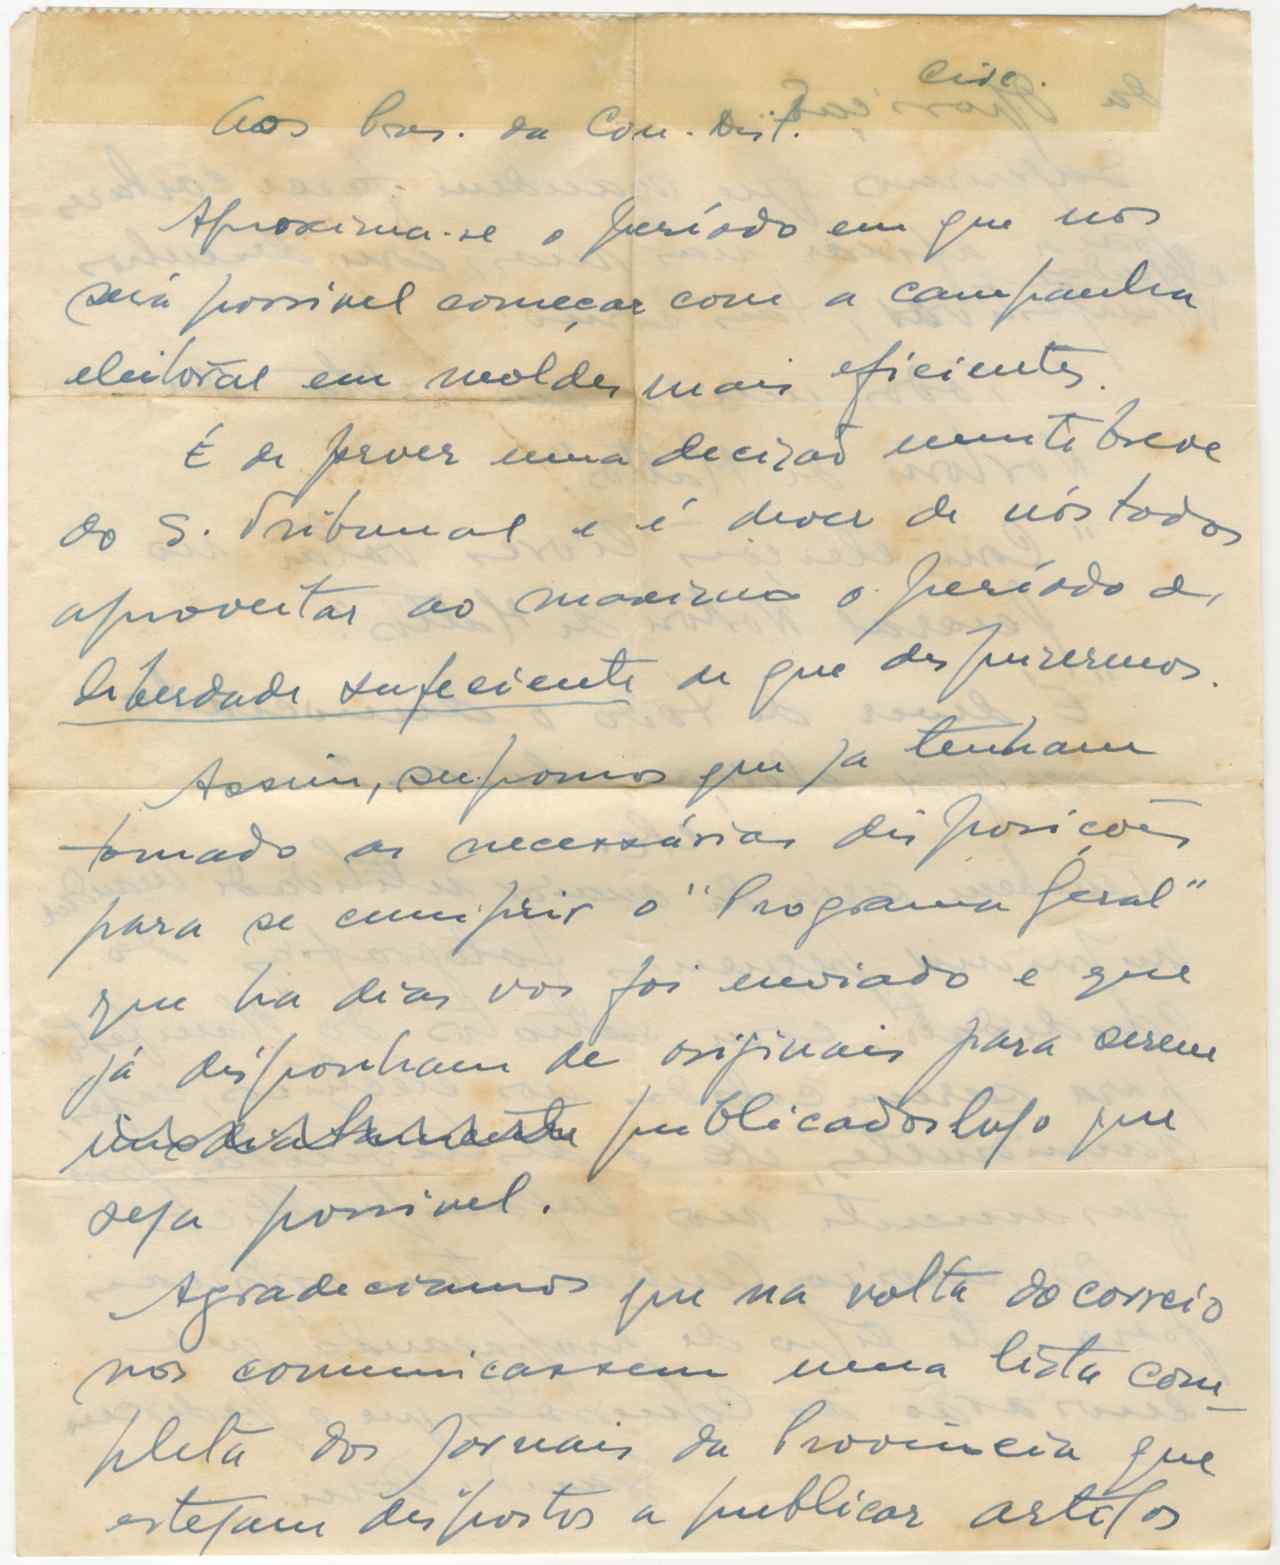 Circ.
Aos Pres. da Com. Dist.
Aproxima-se o período em que nos
será possivel começar com a campanha
eleitoral em moldes mais eficientes.
É de prever uma decizão muito breve
do S. Tribunal e é dever de nós todos
aproveitar ao maximo o período de
liberdade suficiente de que despuzermos.
Assim, supomos que ja tenham
tomado as necessárias disposições
para se cumprir o "Programa Geral"
que ha dias vos foi enviado e que
já disponham de originais para serem
imediatamente publicados logo que
seja possivel.
Agradeciamos que na volta do correio
nos comunicassem uma lista com-
pleta dos jornais da Provincia que
estejam dispostos a publicar artigos